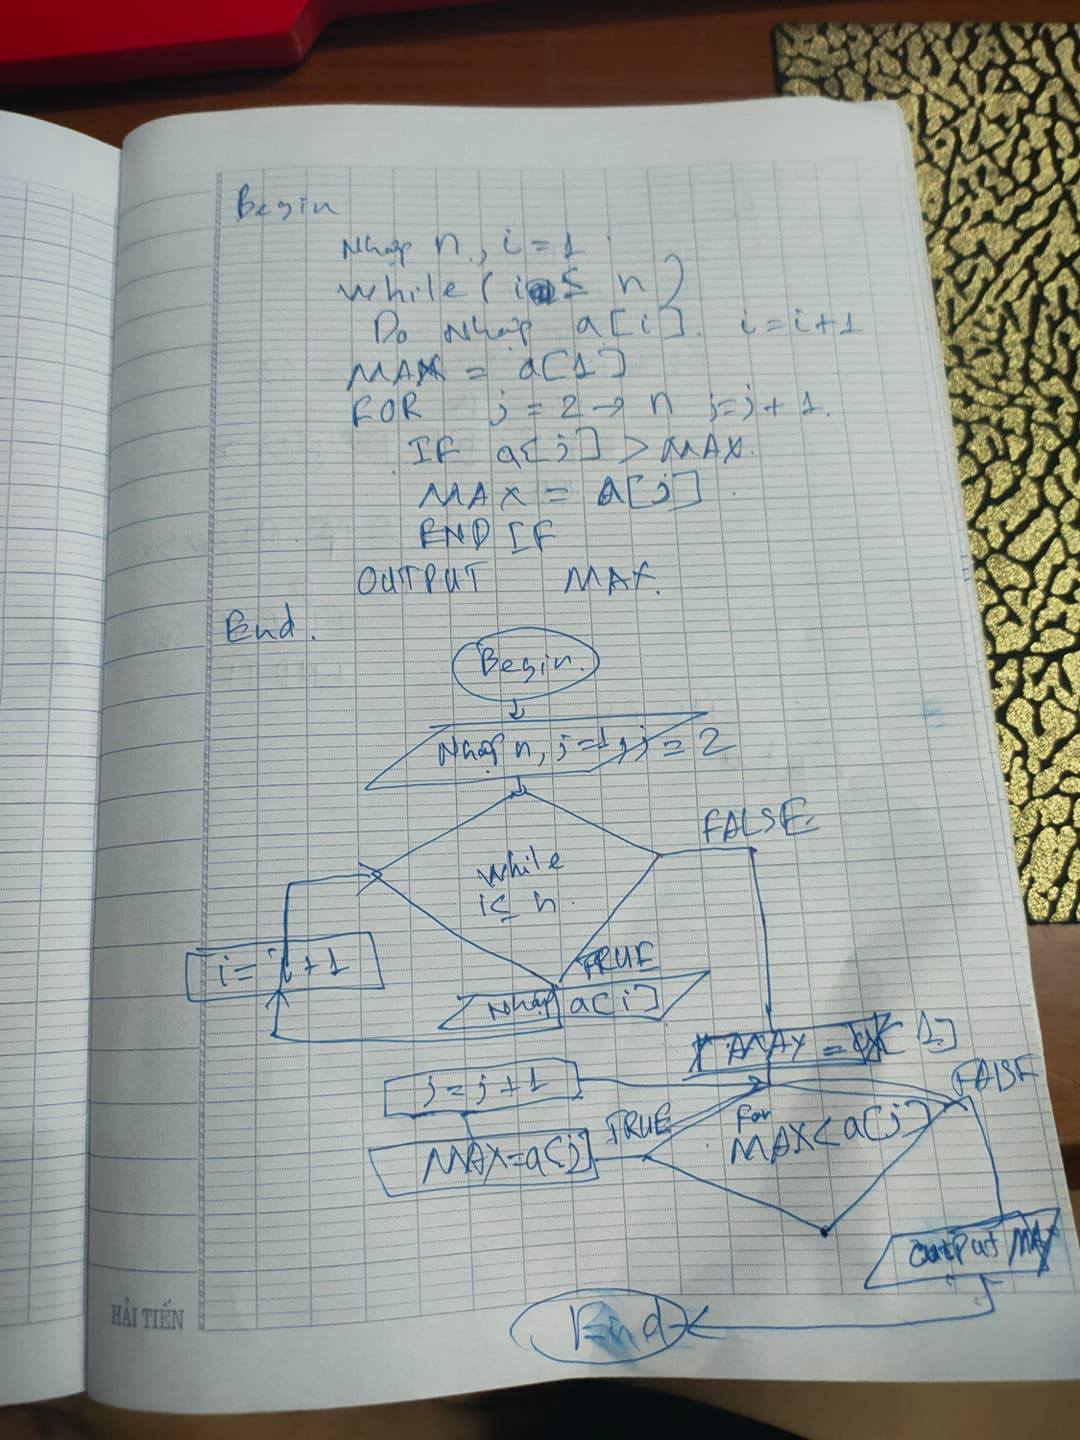 Begin
Nhập n, i = 1
while (i ≤ n)
Do Nhập a[i]. i = i+1
MAX = a[1]
FOR j = 2 → n j=j+1.
IF a[j] > MAX.
MAX = a[j]
END IF
OUTPUT MAX.
End.
Begin.
Nhập n, i=1, j = 2
FALSE
while
i ≤ n.
TRUE
i = i+1
Nhập a[i]
MAX = a[1]
j = j+1
FALSE
TRUE
For
MAX < a[j]
MAX = a[j]
output MAX
End
HẢI TIẾN